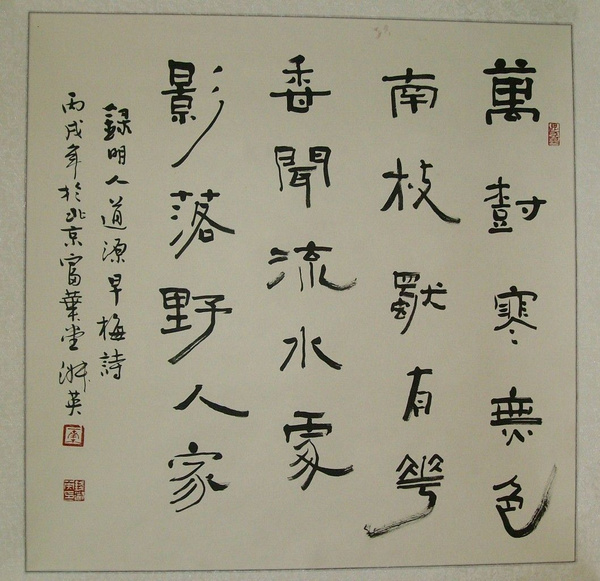 萬樹寒無色
南枝獨有花
香聞流水處
影落野人家
録明人道源早梅詩
丙戌年於北京富華堂淑英